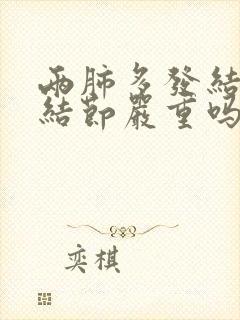 兩肺多發結
結節嚴重嗎
奕棋